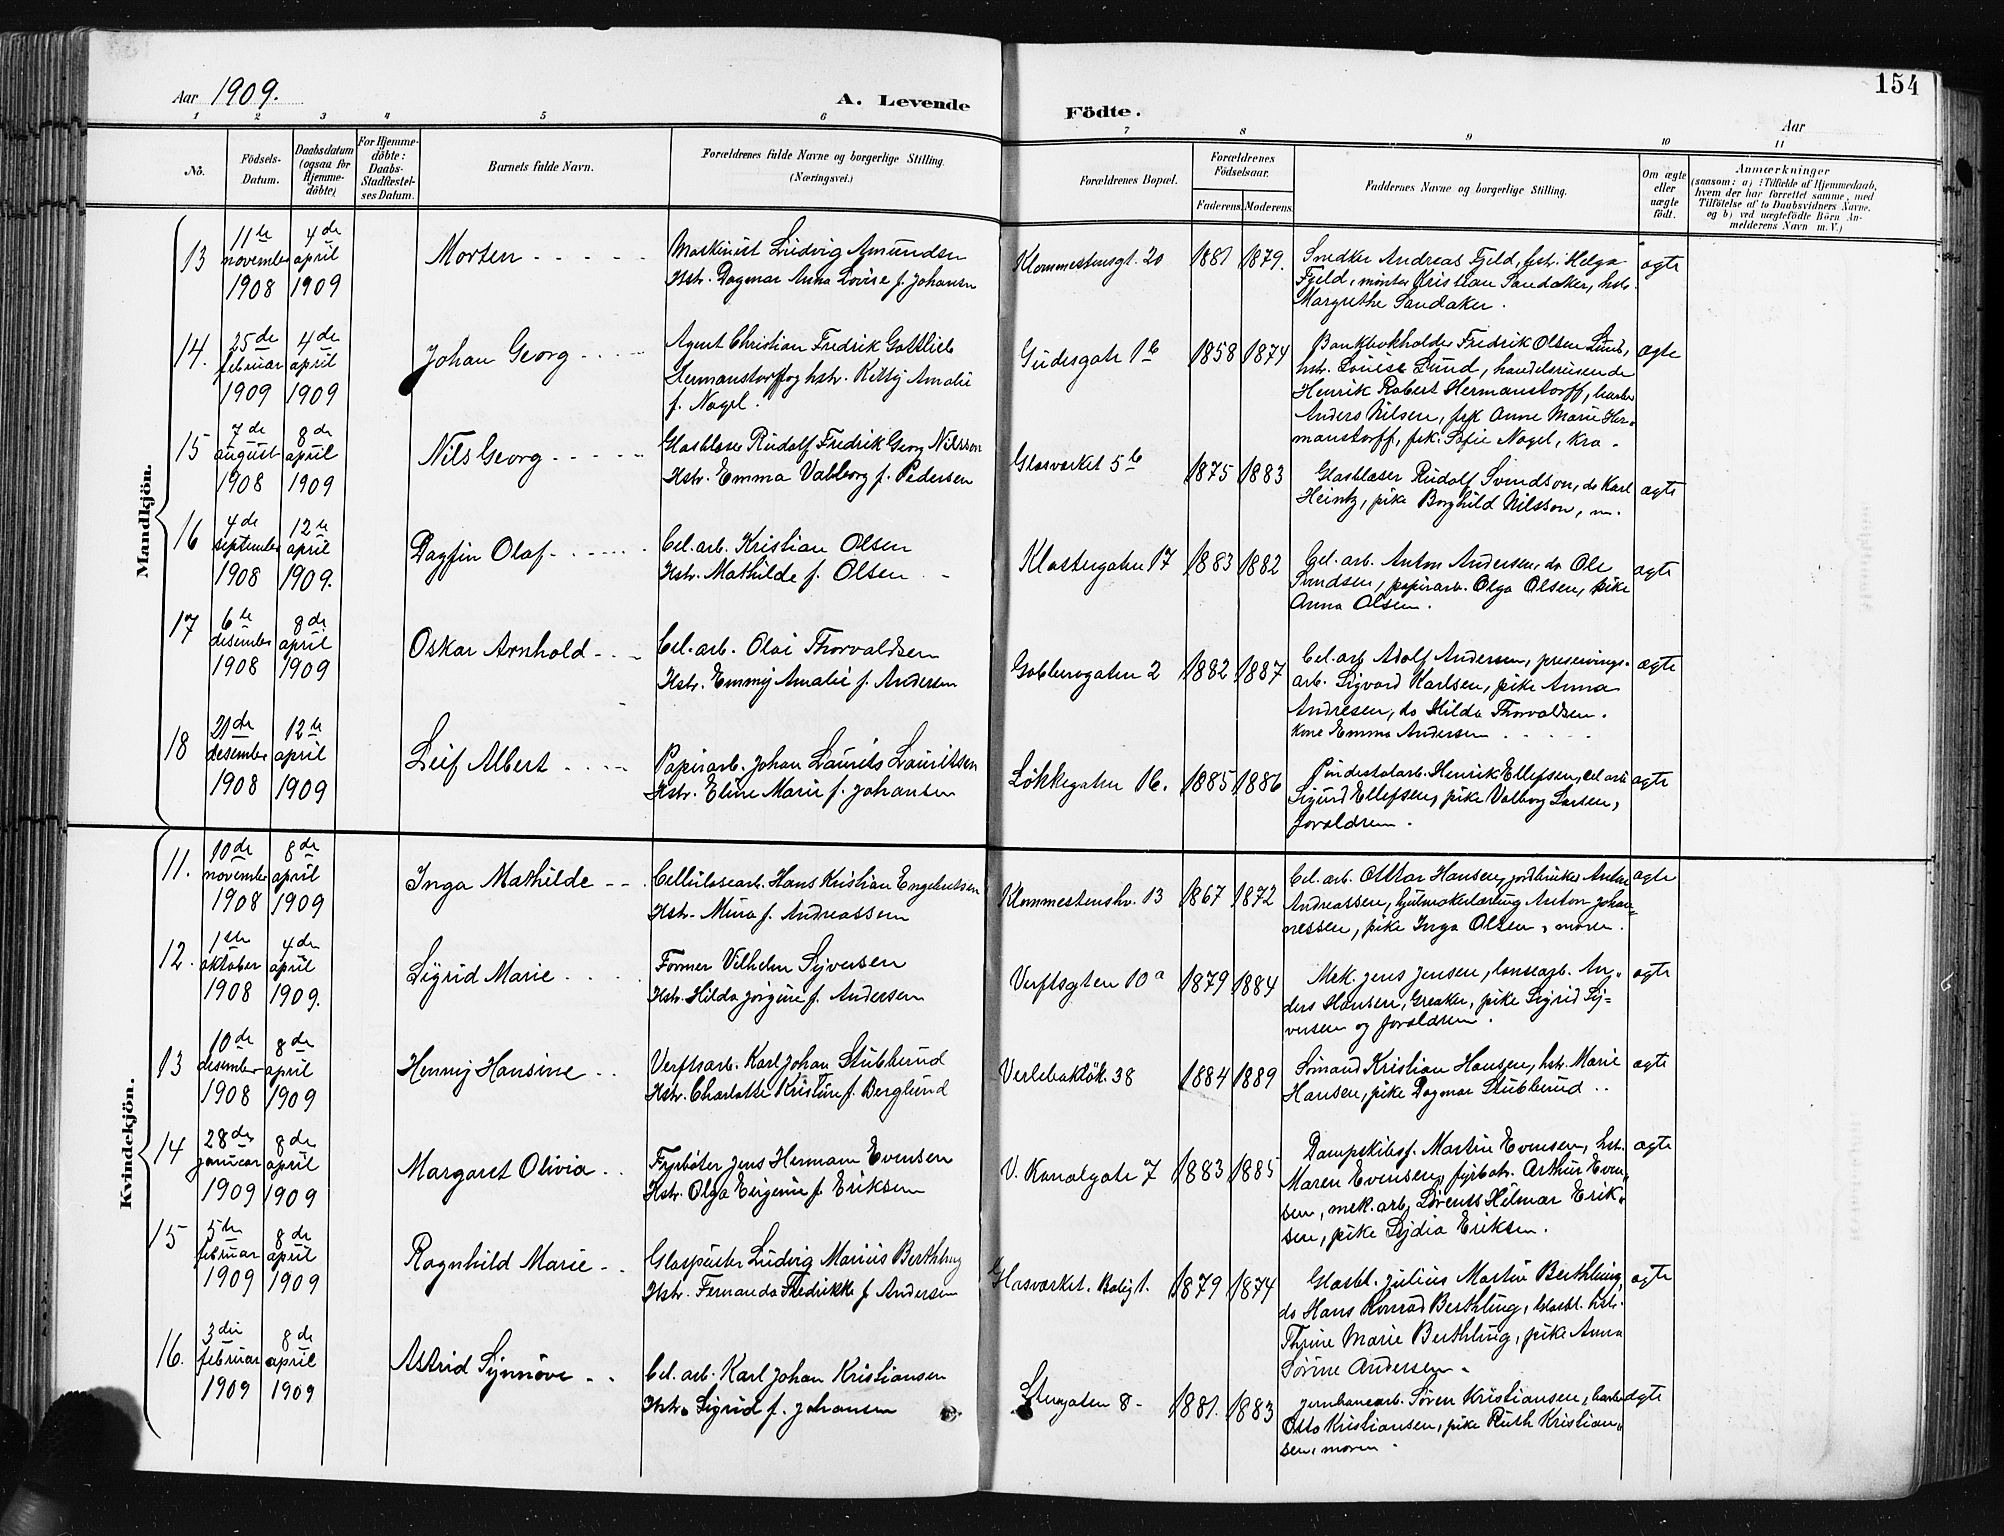 154
Aar 1909.
A. Levende Födte.
Aar
1 2 3 4 5 6 7 8 9 10 11
No.
Födsels-
Datum.
Daabsdatum
(ogsaa for
Hjemme-
döbte)
For Hjemme-
döbte:
Daabs-
Stadfæstel-
ses Datum.
Barnets fulde Navn.
Forældrenes fulde Navne og borgerlige Stilling.
(Næringsvei.)
Forældrenes Bopæl.
Forældrenes
Födselsaar.
Faderens. Moderens.
Faddernes Navne og borgerlige Stilling.
Om ægte
eller
uægte
födt.
Anmærkninger
(saasom: a) i Tilfælde af Hjemmedaab,
hvem der har forrettet samme, med
Tilföielse af to Daabsvidners Navne.
og b) ved uægtefödte Börn An-
melderens Navn m. V.)
Mandkjön.
13
11te november 1908
4de april 1909
Morten
Maskinist Ludvig Amundsen
Hstr. Dagmar Anna Lovise f. Johansen
Klommestensgt. 20
1881 1879.
Snedker Andreas Fjeld, hstr. Helga
Fjeld, Kristian Sandaker, hstr.
Margrethe Sandaker.
ægte
14.
25de februar 1909
4de april 1909
Johan Georg
Agent Christian Fredrik Gottlieb
Hermanstorff og hstr. Kitty Amalie
f. Nagel.
Gudesgate 1b
1858 1874
Bankbokholder Fredrik Olsen Lund,
hstr. Louise Lund, handelsreisende
Henrik Robert Hermanstorff,
Anders Nilsen, frk Anne Marie Her-
manstorff, frk. Sofie Nagel, Kra.
ægte
15
7de august 1908
8de april 1909
Nils Georg
Glasblæser Rudolf Fredrik Georg Nilsson
Hstr. Emma Valborg f. Pedersen
Glasværket 5b
1875 1883
Glasblæser Rudolf Svendson, do Karl
Heintz, pike Borghild Nilsson, m.
ægte
16
4de september 1908
12te april 1909.
Dagfin Olaf
Cel. arb. Kristian Olsen
Hstr. Mathilde f. Olsen
Klostergaten 17
1883 1882
Cel. arb. Anton Andersen, do Ole
Svendsen, papirarb. Olga Olsen, pike
Anna Olsen.
ægte
17
6te desember 1908
8de april 1909
Oskar Arnhold
Cel. arb. Olai Thorvaldsen
Hstr. Emmy Amalie f. Andersen
Gobberogaten 2
1882 1887
Cel. arb Adolf Andersen, preservings-
arb. Sigvard Karlsen, pike Anna
Andresen, do Hilda Thorvaldsen.
Kone Emma Andersen
ægte
18
21de desember 1908
12te april 1909
Leif Albert
Papirarb. Johan Laurits Lauritssen
Hstr. Eline Marie f. Johansen
Løkkegaten 16.
1885 1886
Henrik Ellefsen, cel. arb
Sigurd Ellefsen, pike Valborg Larsen,
forældrene.
ægte
Kvindekjön.
11.
10de november 1908
8de april 1909
Inga Mathilde
Cellulosearb. Hans Kristian Engebretsen
Hstr. Mina f. Andreassen
Klommestenshv. 13
1867 1872
Cel. arb. Ottar Hansen, jordbruker Anton
Andreassen, hjulmakerlærling Anton Johan-
nessen, pike Inga Olsen, moren.
ægte
12.
1ste oktober 1908
4de april 1909.
Sigrid Marie
Former Vilhelm Syversen
Hstr. Hilda Jørgine f. Andersen
Verftsgten 10a
1879 1884
Mek. Jens Jensen, lensearb. An-
ders Hansen, Greaker, pike Sigrid Sy-
versen og forældrene.
ægte
13
10de desember 1908
8de april 1909
Henny Hansine
Verftsarb. Karl Johan Stubberud
Hstr. Charlotte Kristine f. Berglund
Verlebakløk. 38
1884 1889
Sömand Kristian Hansen, hstr. Marie
Hansen, pike Dagmar Stubberud
ægte
14
28de januar 1909
8de april 1909
Margaret Olivia
Fyrböter Jens Herman Evensen
Hstr. Olga Eugenie f. Eriksen
V. Kanalgate 7
1883 1885
Dampskibsf. Martin Evensen, hstr.
Maren Evensen, fyrbøt. Arthur Even-
sen, mek. arb. Lorents Hilmar Erik-
sen, pike Lydia Eriksen.
ægte
15
5te februar 1909
8de april 1909
Ragnhild Marie
Glaspuster Ludvig Marius Berthling
Hstr. Fernanda Fredrikke f. Andersen
Glasværket. Bolig 1.
1879 1874
Glasbl. Julius Martin Berthling,
do Hans Konrad Berthling, Glasbl. hstr.
Thrine Marie Berthling, pike Anna
Sørine Andersen.
ægte
16.
3die februar 1909
8de april 1909
Astrid Synnöve
Cel. arb. Karl Johan Kristiansen
Hstr. Sigrid f. Johansen
8
1881. 1883
Jernbanearb. Søren Kristiansen,
Otto Kristiansen, pike Ruth Kristian-
sen, moren.
ægte